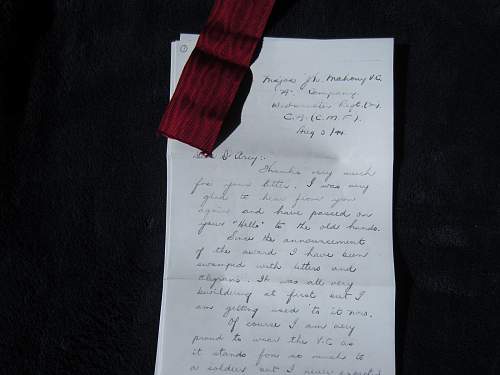 ①
Major J.K. Mahony V.C.
"A" Company
Westminster Regt. (M)
C.A. (C.M.F.).
Aug 3/44.
Dear D'Arcy:-
Thanks very much
for your letter. I was very
glad to hear from you
again and have passed on
your "Hello" to the old hands.
Since the announcement
of the award I have been
swamped with letters and
telegrams. It was all very
bewildering at first but I
am getting used to it now.
Of course I am very
proud to wear the V.C. as
it stands for so much to
a soldier but I never expected